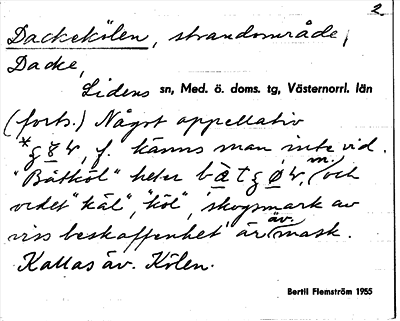 2
Dackekölen, strandområde,
Dacke,
Lidens sn, Med. ö. doms. tg, Västernorrl. län
(forts.) Något appellativ
f. känns man inte vid.
"Båtköl" heter m. och
ordet "käl", "köl", 'skogsmark av
viss beskaffenhet' är äv. mask.
Kallas äv. Kölen.
Bertil Flemström 1955